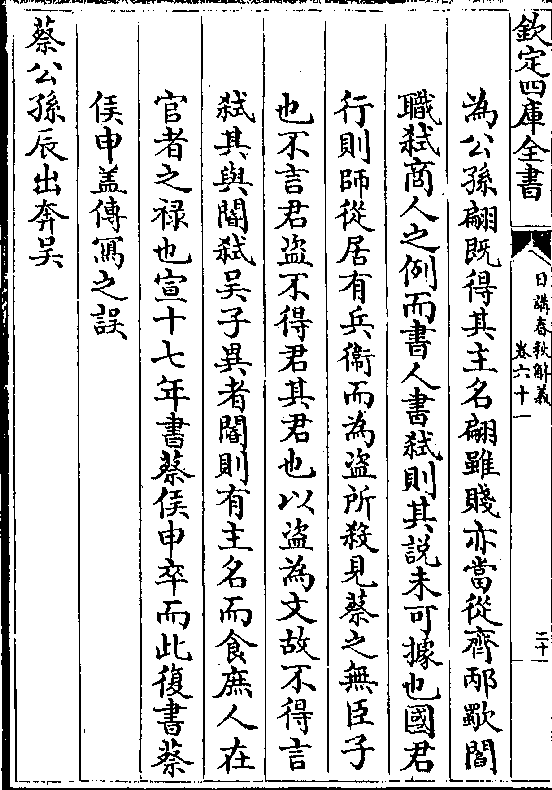 欽定四庫全書
日講春秋解義
卷六十一
二十
為公孫翩既得其主名翩雖賤亦當從齊邴歜閻
職弑商人之例而書人書弑則其説未可據也國君
行則師從居有兵衛而為盗所殺見蔡之無臣子
也不言君盗不得君其君也以盗為文故不得言
弑其與閽弑吳子異者閽則有主名而食庶人在
官者之禄也宣十七年書蔡侯申卒而此復書蔡
侯申盖傳寫之誤
蔡公孫辰出奔吳